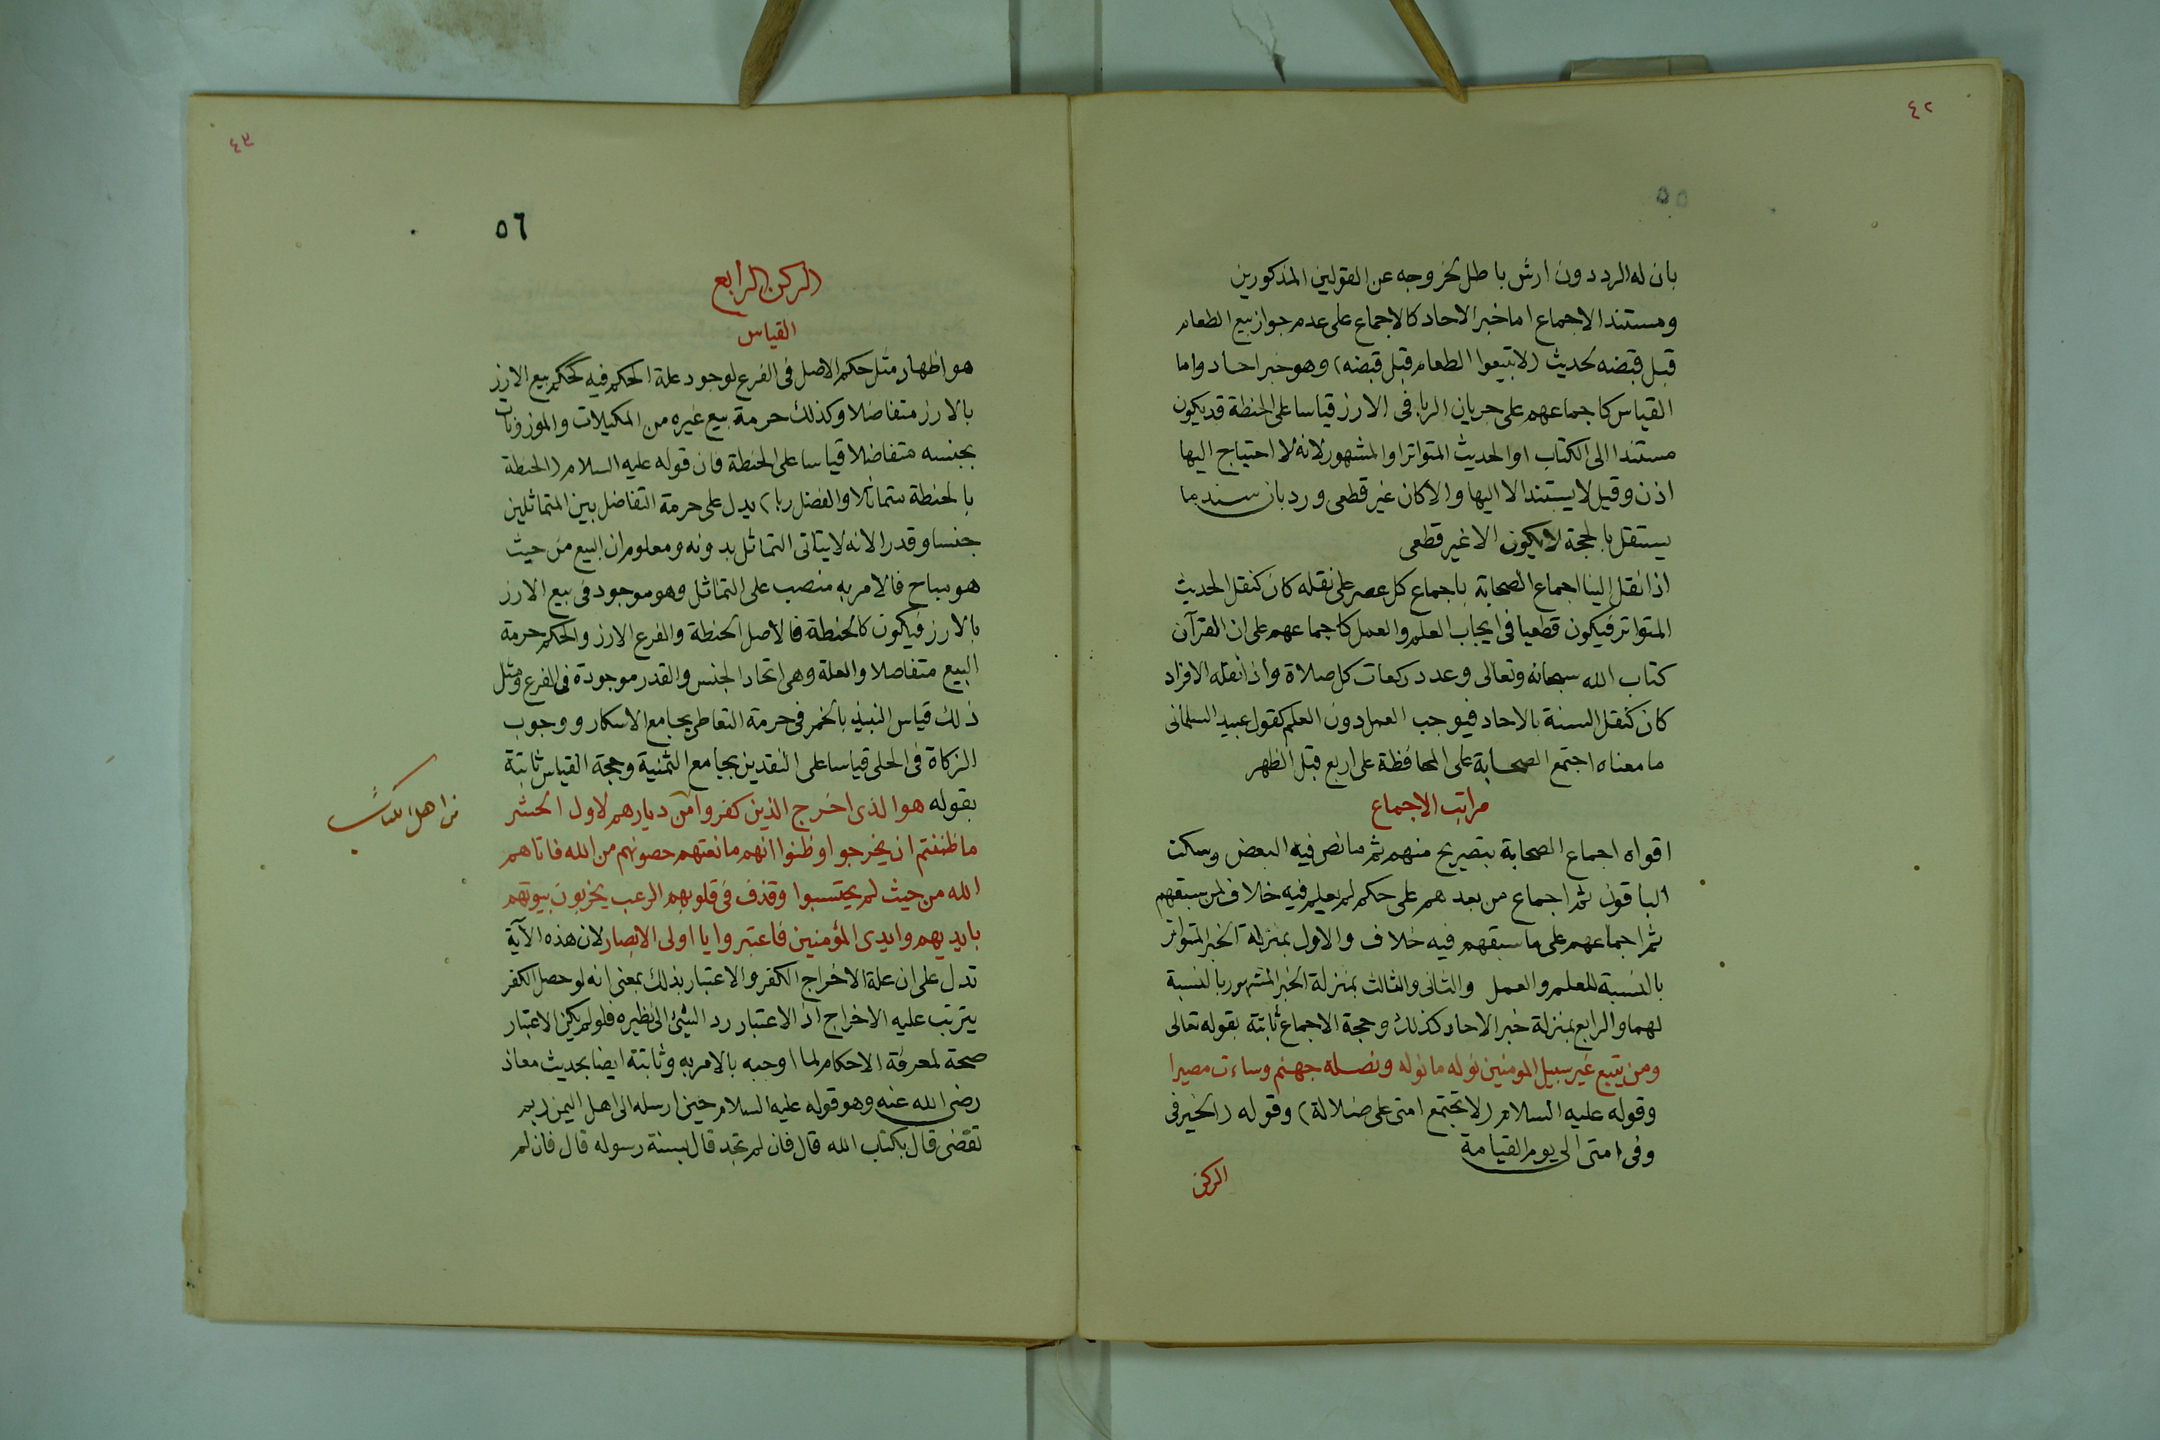 ٤٢
٥٥
بان له الرد دون ارش باطل لخروجه عن القولين المذكورين
ومستند الاجماع اما خبر الاحاد كالاجماع على عدم جواز بيع الطعام
قبل قبضه لحديث (لا تبيعوا الطعام قبل قبضه) وهو خبر احاد واما
القياس كاجماعهم على جريان الربا فى الارز قياسا على الحنطة قد يكون
مستندا الى الكتاب او الحديث المتواتر او المشهور لانه لا احتياج اليها
اذن وقيل لا يستند الا اليها والا كان غير قطعى ورد بان سند ما
يستقل بالحجة لا يكون الا غير قطعى
اذا نقل الينا اجماع الصحابة باجماع كل عصر على نقله كان كنقل الحديث
المتواتر فيكون قطعيا فى ايجاب العلم والعمل كاجماعهم على ان القرآن
كتاب الله سبحانه وتعالى وعدد ركعات كل صلاة واذا نقله الافراد
كان كنقل السنة بالاحاد فيوجب العمل دون العلم كقول عبيد السلمانى
ما معناه اجتمع الصحابة على المحافظة على اربع قبل الظهر
مراتب الاجماع
اقواه اجماع الصحابة بتصريح منهم ثم ما نص فيه البعض وسكت
الباقون ثم اجماع من بعدهم على حكم لم يعلم فيه خلاف لمن سبقهم
ثم اجماعهم على ما سبقهم فيه خلاف والاول بمنزلة الخبر المتواتر
بالنسبة للعلم والعمل والثانى والثالث بمنزلة الخبر المشهور بالنسبة
لهما والرابع بمنزلة خبر الاحاد كذلك وحجة الاجماع ثابتة بقوله تعالى
ومن يتبع غير سبيل المومنين نوله ما توله ونصله جهنم وساءت مصيرا
وقوله عليه السلام (لا تجتمع امتى على ضلالة) وقوله (الخير فى
وفى امتى الى يوم القيامة
الركن
٤٣
٥٦
الركن الرابع
القياس
هو اظهار مثل حكم الاصل فى الفرع لوجود علة الحكم فيه كحكم بيع الارز
بالارز متفاضلا وكذلك حرمة بيع غيره من المكيلات والموزونات
بجنسه متفاضلا قياسا على الحنطة فان قوله عليه السلام (الحنطة
بالحنطة متماثلا والفضل ربا) يدل على حرمة التفاضل بين المتماثلين
جنسا وقدرا لانه لا يتاتى التماثل بدونه ومعلوم ان البيع من حيث
هو مباح فالامر به منصب على التماثل وهو موجود فى بيع الارز
بالارز فيكون كالحنطة فالاصل الحنطة والفرع الارز والحكم حرمة
البيع متفاضلا والعلة وهى اتحاد الجنس والقدر موجودة فى الفرع ومثل
ذلك قياس النبيذ بالخمر فى حرمة التعاطى بجامع الاسكار ووجوب
الزكاة فى الحلى قياسا على النقدين بجامع الثمنية وحجة القياس ثابتة
بقوله هو الذى اخرج الذين كفروا من ديارهم لاول الحشر
من اهل الكتاب
ما ظننتم ان يخرجوا وظنوا انهم مانعتهم حصونهم من الله فاتاهم
الله من حيث لم يحتسبوا وقذف فى قلوبهم الرعب يخربون بيوتهم
بايديهم وايدى المؤمنين فاعتبروا يا اولى الابصار لان هذه الآية
تدل على ان علة الاخراج الكفر والاعتبار بذلك بمعنى انه لو حصل الكفر
يترتب عليه الاخراج اذ الاعتبار رد الشئ الى نظيره فلو لم يكن الاعتبار
صحة لمعرفة الاحكام لما اوجبه بالامر به وثابتة ايضا بحديث معاذ
رضى الله عنه وهو قوله عليه السلام حين ارسله الى اهل اليمن (بم
تقضى قال بكتاب الله قال فان لم تجد قال بسنة رسوله قال فان لم